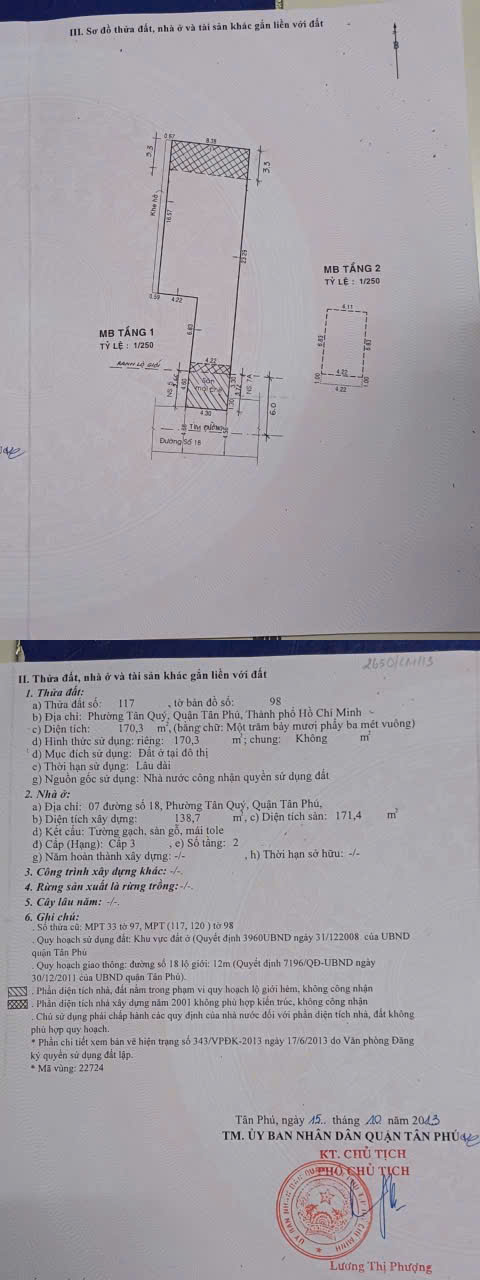 III. Sơ đồ thửa đất, nhà ở và tài sản khác gắn liền với đất
B
0.67
8.38
3.5
3.5
Khe hở
16.57
23.29
0.59
4.22
6.63
MB TẦNG 1
TỶ LỆ : 1/250
RANH LỘ GIỚI
4.22
Sân
mái che
NS: 5
4.60
NS: 7A
1.30
4.30
6.0
TIM ĐƯỜNG
Đường Số 18
MB TẦNG 2
TỶ LỆ : 1/250
4.11
6.63
6.63
1.00
4.22
1.00
4.22
2650/CN/13
II. Thửa đất, nhà ở và tài sản khác gắn liền với đất
1. Thửa đất:
a) Thửa đất số: 117 , tờ bản đồ số: 98
b) Địa chỉ: Phường Tân Quý, Quận Tân Phú, Thành phố Hồ Chí Minh
c) Diện tích: 170,3 m², (bằng chữ: Một trăm bảy mươi phẩy ba mét vuông)
d) Hình thức sử dụng: riêng: 170,3 m²; chung: Không m²
đ) Mục đích sử dụng: Đất ở tại đô thị
e) Thời hạn sử dụng: Lâu dài
g) Nguồn gốc sử dụng: Nhà nước công nhận quyền sử dụng đất
2. Nhà ở:
a) Địa chỉ: 07 đường số 18, Phường Tân Quý, Quận Tân Phú,
b) Diện tích xây dựng: 138,7 m², c) Diện tích sàn: 171,4 m²
d) Kết cấu: Tường gạch, sàn gỗ, mái tole
đ) Cấp (Hạng): Cấp 3 , e) Số tầng: 2
g) Năm hoàn thành xây dựng: -/- , h) Thời hạn sở hữu: -/-
3. Công trình xây dựng khác: -/-.
4. Rừng sản xuất là rừng trồng: -/-.
5. Cây lâu năm: -/-.
6. Ghi chú:
. Số thửa cũ: MPT 33 tờ 97, MPT (117, 120 ) tờ 98
. Quy hoạch sử dụng đất: Khu vực đất ở (Quyết định 3960UBND ngày 31/122008 của UBND
quận Tân Phú
. Quy hoạch giao thông: đường số 18 lộ giới: 12m (Quyết định 7196/QĐ-UBND ngày
30/12/2011 của UBND quận Tân Phú).
. Phần diện tích nhà, đất nằm trong phạm vi quy hoạch lộ giới hẻm, không công nhận
. Phần diện tích nhà xây dựng năm 2001 không phù hợp kiến trúc, không công nhận
. Chủ sử dụng phải chấp hành các quy định của nhà nước đối với phần diện tích nhà, đất không
phù hợp quy hoạch.
* Phần chi tiết xem bản vẽ hiện trạng số 343/VPĐK-2013 ngày 17/6/2013 do Văn phòng Đăng
ký quyền sử dụng đất lập.
* Mã vùng: 22724
Tân Phú, ngày 15.. tháng 10 năm 2013
TM. ỦY BAN NHÂN DÂN QUẬN TÂN PHÚ
KT. CHỦ TỊCH
PHÓ CHỦ TỊCH
Lương Thị Phượng